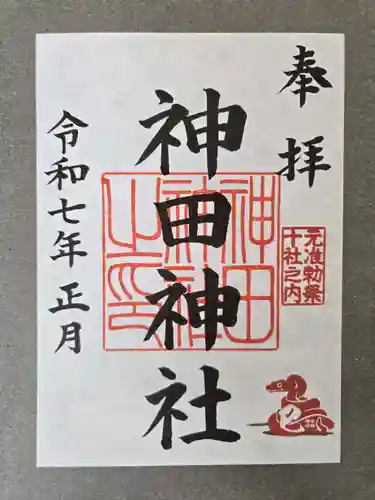 奉拝
神田神社
令和七年正月
神田神社之印
元准勅祭
十社之内